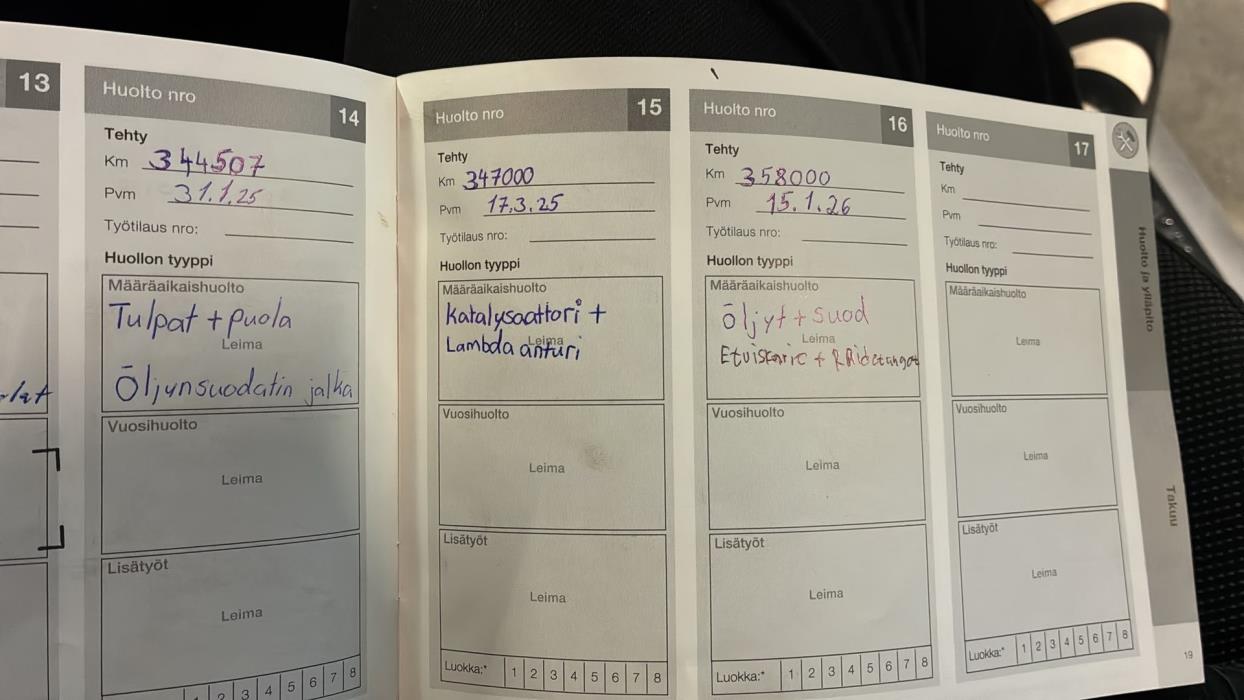 13
Huolto nro
14
Tehty
Km 344507
Pvm 31.1.25
Työtilaus nro:
Huollon tyyppi
Määräaikaishuolto
Tulpat + puola
Leima
Öljynsuodatin jalka
Vuosihuolto
Leima
Lisätyöt
Leima
2 3 4 5 6 7 8
Huolto nro
15
Tehty
Km 347000
Pvm 17.3.25
Työtilaus nro:
Huollon tyyppi
Määräaikaishuolto
Katalysaattori +
Leima
Lambda anturi
Vuosihuolto
Leima
Lisätyöt
Leima
Luokka:* 1 2 3 4 5 6 7 8
Huolto nro
16
Tehty
Km 358000
Pvm 15.1.26
Työtilaus nro:
Huollon tyyppi
Määräaikaishuolto
Öljyt + Suod
Leima
+
Vuosihuolto
Leima
Lisätyöt
Leima
Luokka:* 1 2 3 4 5 6 7 8
Huolto nro
17
Tehty
Km
Pvm
Työtilaus nro:
Huollon tyyppi
Määräaikaishuolto
Leima
Vuosihuolto
Leima
Lisätyöt
Leima
Luokka:* 1 2 3 4 5 6 7 8
Huolto ja ylläpito
Takuu
19